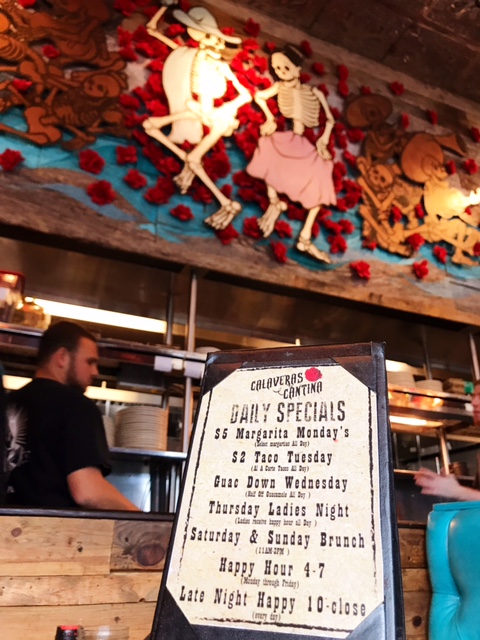 CALAVERAS
CANTINA
DAILY SPECIALS
$5 Margarita Monday's
(Select margaritas All Day)
$2 Taco Tuesday
(Al A Carte Tacos All Day)
Guac Down Wednesday
(Half Off Guacamole All Day)
Thursday Ladies Night
(Ladies receive happy hour all Day)
Saturday & Sunday Brunch
(11AM-3PM)
Happy Hour 4-7
(Monday through Friday)
Late Night Happy 10-close
(every day)